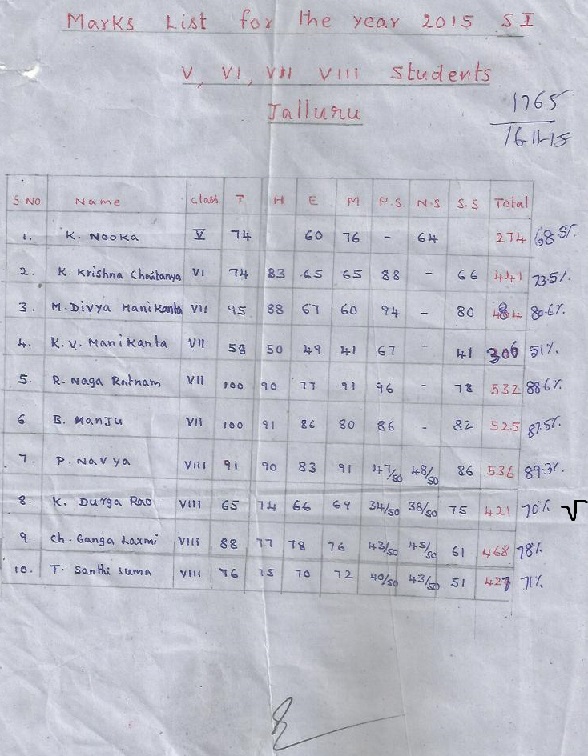 Marks List for the year 2015 SI
V, VI, VII VIII Students
Jalluru
1765
16-11-15
S.NO Name class T H E M P.S N.S S.S Total
1. K. Nooka V 74 60 76 - 64 274 68.5%
2. K Krishna Chaitanya VI 74 83 65 65 88 - 66 441 73.5%
3. M. Divya Manikanta VII 95 88 67 60 94 - 80 484 80.6%
4. K. V. Manikanta VII 58 50 49 41 67 41 306 51%
5. R. Naga Ratnam VII 100 90 77 91 96 - 78 532 88.6%
6 B. Manju VII 100 91 86 80 86 - 82 525 87.5%
7 P. Navya VIII 91 90 83 91 47/50 48/50 86 536 89.3%
8 K. Durga Rao VIII 65 74 66 69 34/50 38/50 75 421 70% √
9 Ch. Ganga Laxmi VIII 88 77 78 76 43/50 45/50 61 468 78%
10. T. Santhi Suma VIII 76 75 70 72 40/50 43/50 51 427 71%